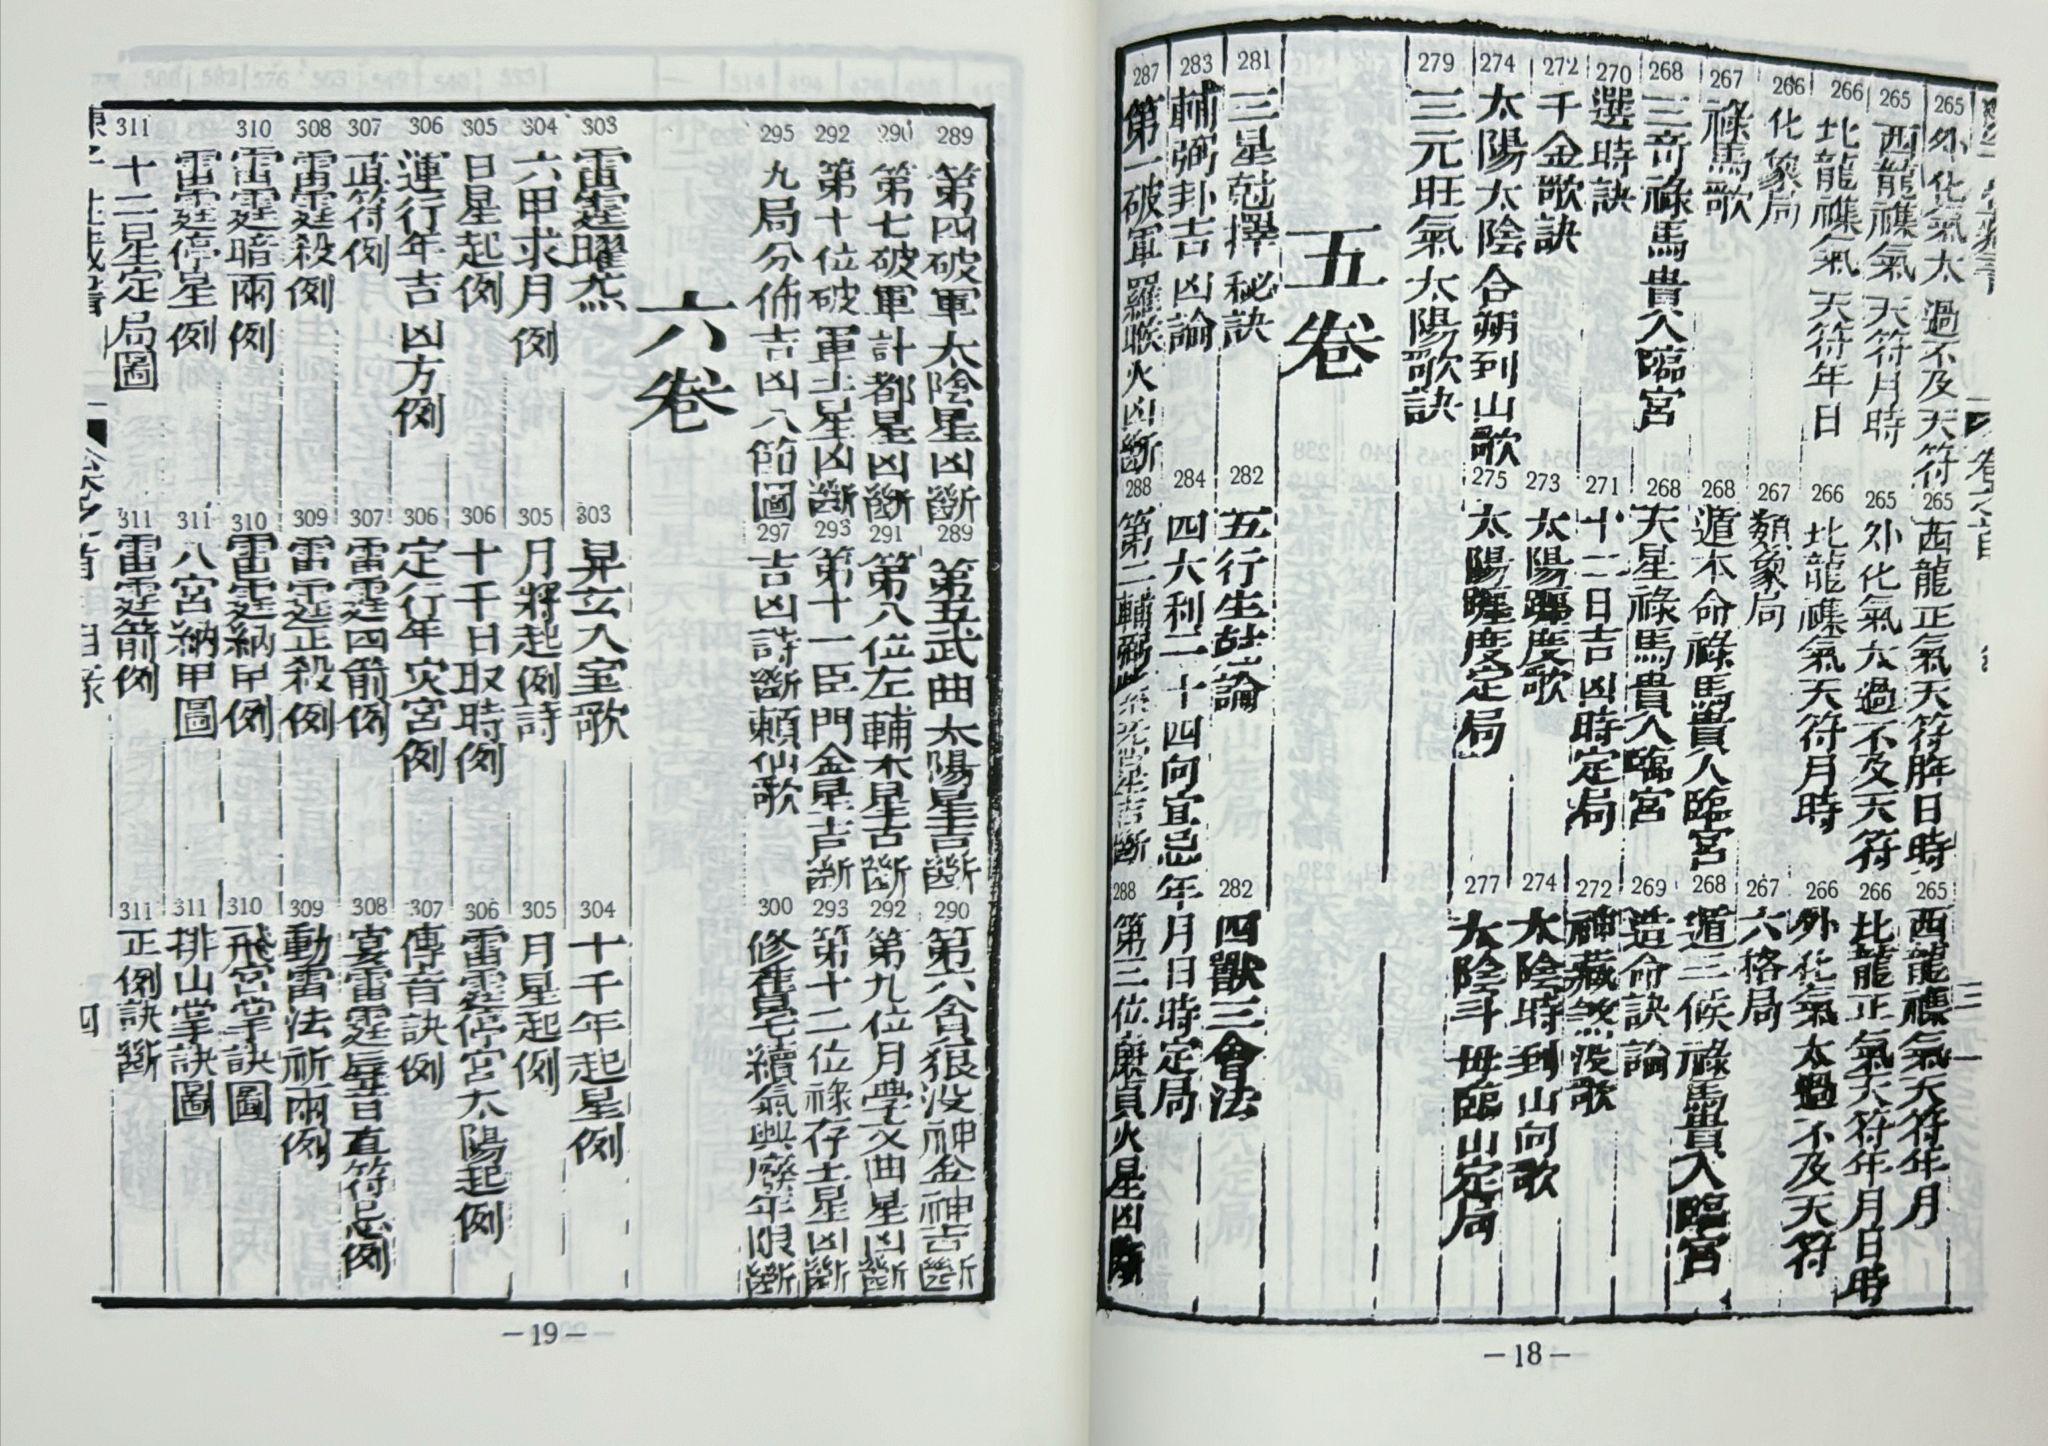 265
外化氣太過不及天符
265
西龍正氣天符年日時
265
西龍雜氣天符年月
265
西龍雜氣天符月時
265
外化氣太過不及天符
266
北龍正氣天符年月日時
266
北龍雜氣天符年日
266
北龍雜氣天符月時
266
外化氣太過不及天符
266
化象局
267
類象局
267
六格局
267
祿馬歌
268
遁本命祿馬貴人臨宮
268
遁三候祿馬貴人臨宮
268
三竒祿馬貴人臨宮
268
天星祿馬貴人臨宮
269
造命訣論
270
選時訣
271
十二日吉凶時定局
272
神藏煞沒歌
272
千金歌訣
273
太陽躔度歌
274
太陰時到山向歌
274
太陽太陰合朔到山歌
275
太陽躔度定局
277
太陰斗母臨山定局
279
三元旺氣太陽歌訣
五卷
281
三星尅擇秘訣
282
五行生尅論
282
四獸三會法
283
輔弼卦吉凶論
284
四大利二十四向宜忌年月日時定局
287
第一破軍羅睺火凶斷
288
第二輔弼紫炁星吉斷
288
第三位廉貞火星凶斷
—18—
289
第四破軍太陰星凶斷
289
第五武曲太陽星吉斷
290
第六貪狼沒神金神吉斷
290
第七破軍計都星凶斷
291
第八位左輔木星吉斷
292
第九位月孛文曲星凶斷
292
第十位破軍土星凶斷
293
第十一臣門金星吉斷
293
第十二位祿存土星凶斷
295
九局分佈吉凶八節圖
297
吉凶詩斷賴仙歌
300
修舊宅續氣興廢年限斷
六卷
303
雷霆曜炁
303
昇玄入室歌
304
十千年起星例
304
六甲求月例
305
月將起例詩
305
月星起例
305
日星起例
306
十千日取時例
306
雷霆停宮太陽起例
306
運行年吉凶方例
306
定行年灾宮例
307
傳音訣例
307
直符例
307
雷霆四箭例
308
宴雷霆昼昔直符忌例
308
雷霆殺例
309
雷霆正殺例
309
動雷法祈雨例
310
雷霆暗雨例
310
雷霆納甲例
310
飛宮掌訣圖
雷霆停星例
311
八宮納甲圖
311
排山掌訣圖
311
十二星定局圖
311
雷霆箭例
311
正例訣斷
四
—19—